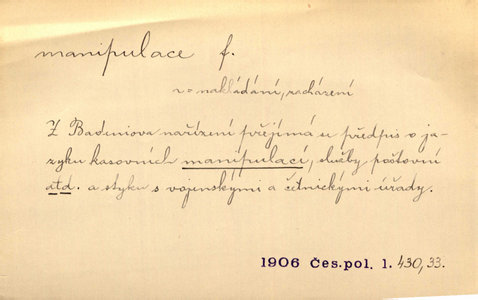 manipulace f.
v = nakládání, zacházení
Z Badeniova nařízení přejímá se předpis o ja-
zyku kasovních manipulací, služby poštovní
atd. a styku s vojenskými a četnickými úřady.
1906 Čes. pol. 1. 430, 33.